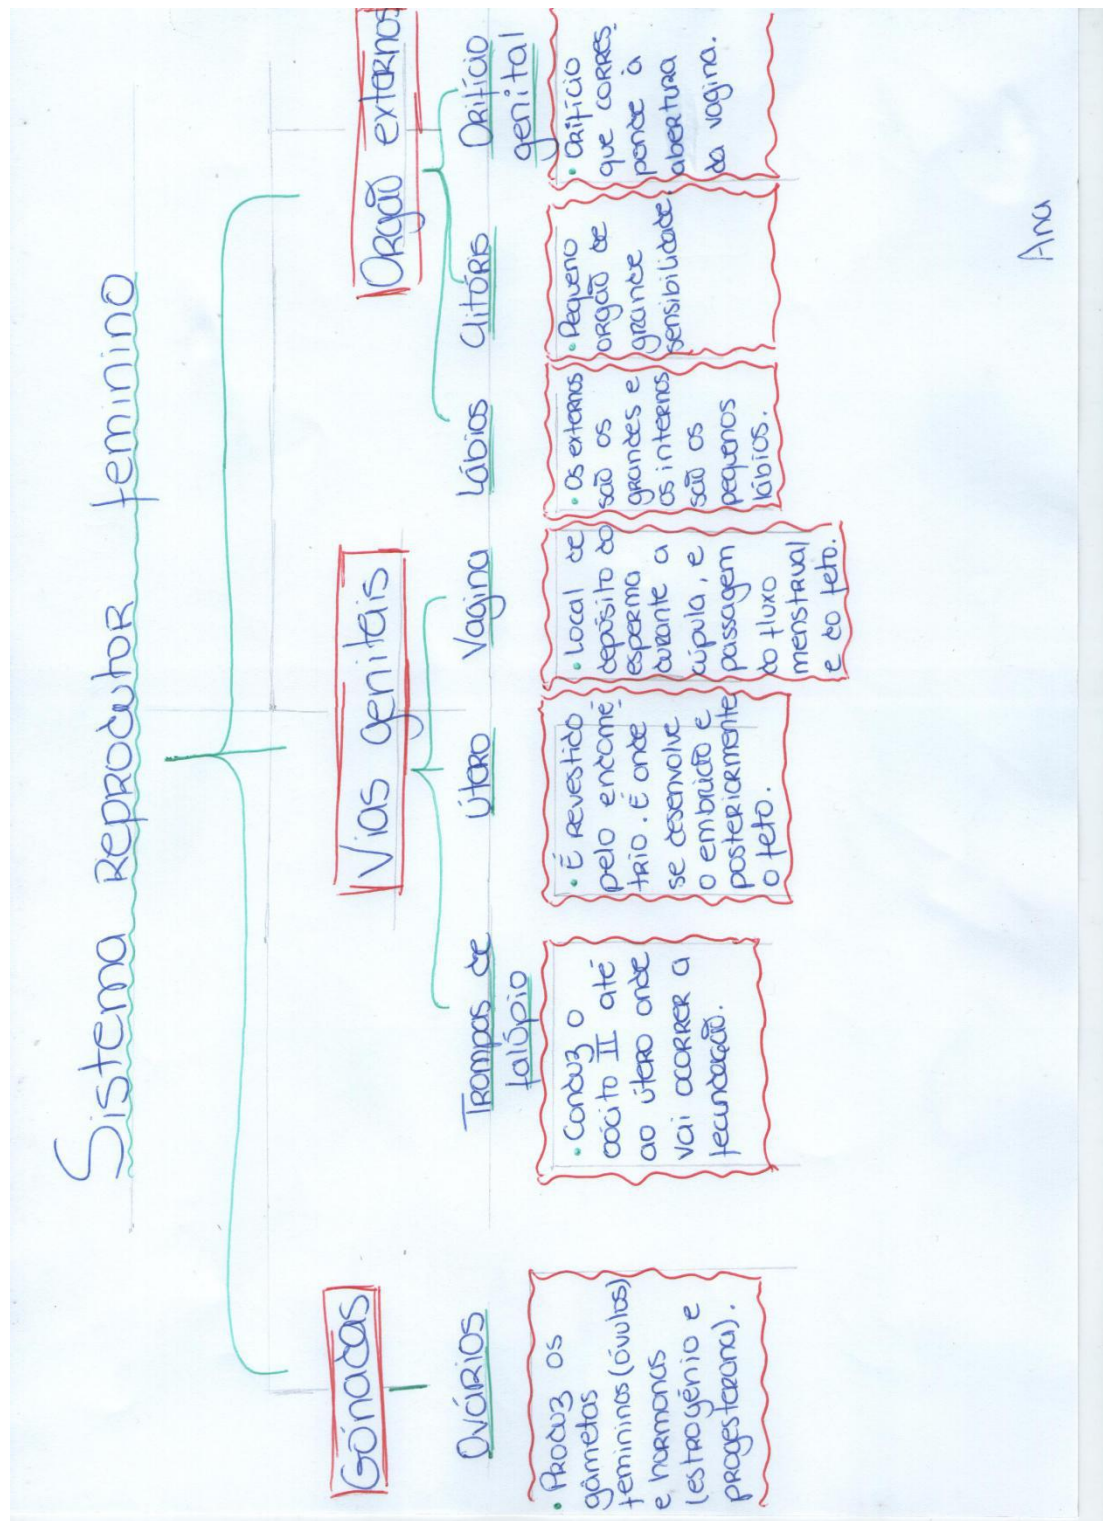 Sistema Reprodutor feminino
Gónadas
Ovários
• Produz os
gâmetas
femininos (óvulos)
e hormonas
(estrogénio e
progesterona).
Vias genitais
Trompas de
falópio
• Conduz o
oócito II até
ao útero onde
vai ocorrer a
fecundação.
Útero
• É revestido
pelo endomé-
trio. É onde
se desenvolve
o embrião e
posteriormente
o feto.
Vagina
• Local de
depósito do
esperma
durante a
cúpula, e
passagem
do fluxo
menstrual
e do feto.
Orgão externos
Lábios
• Os externos
são os
grandes e
os internos
são os
pequenos
lábios.
Clitóris
• Pequeno
orgão de
grande
sensibilidade.
Orifício
genital
• Orifício
que corres-
ponde à
abertura
da vagina.
Ana